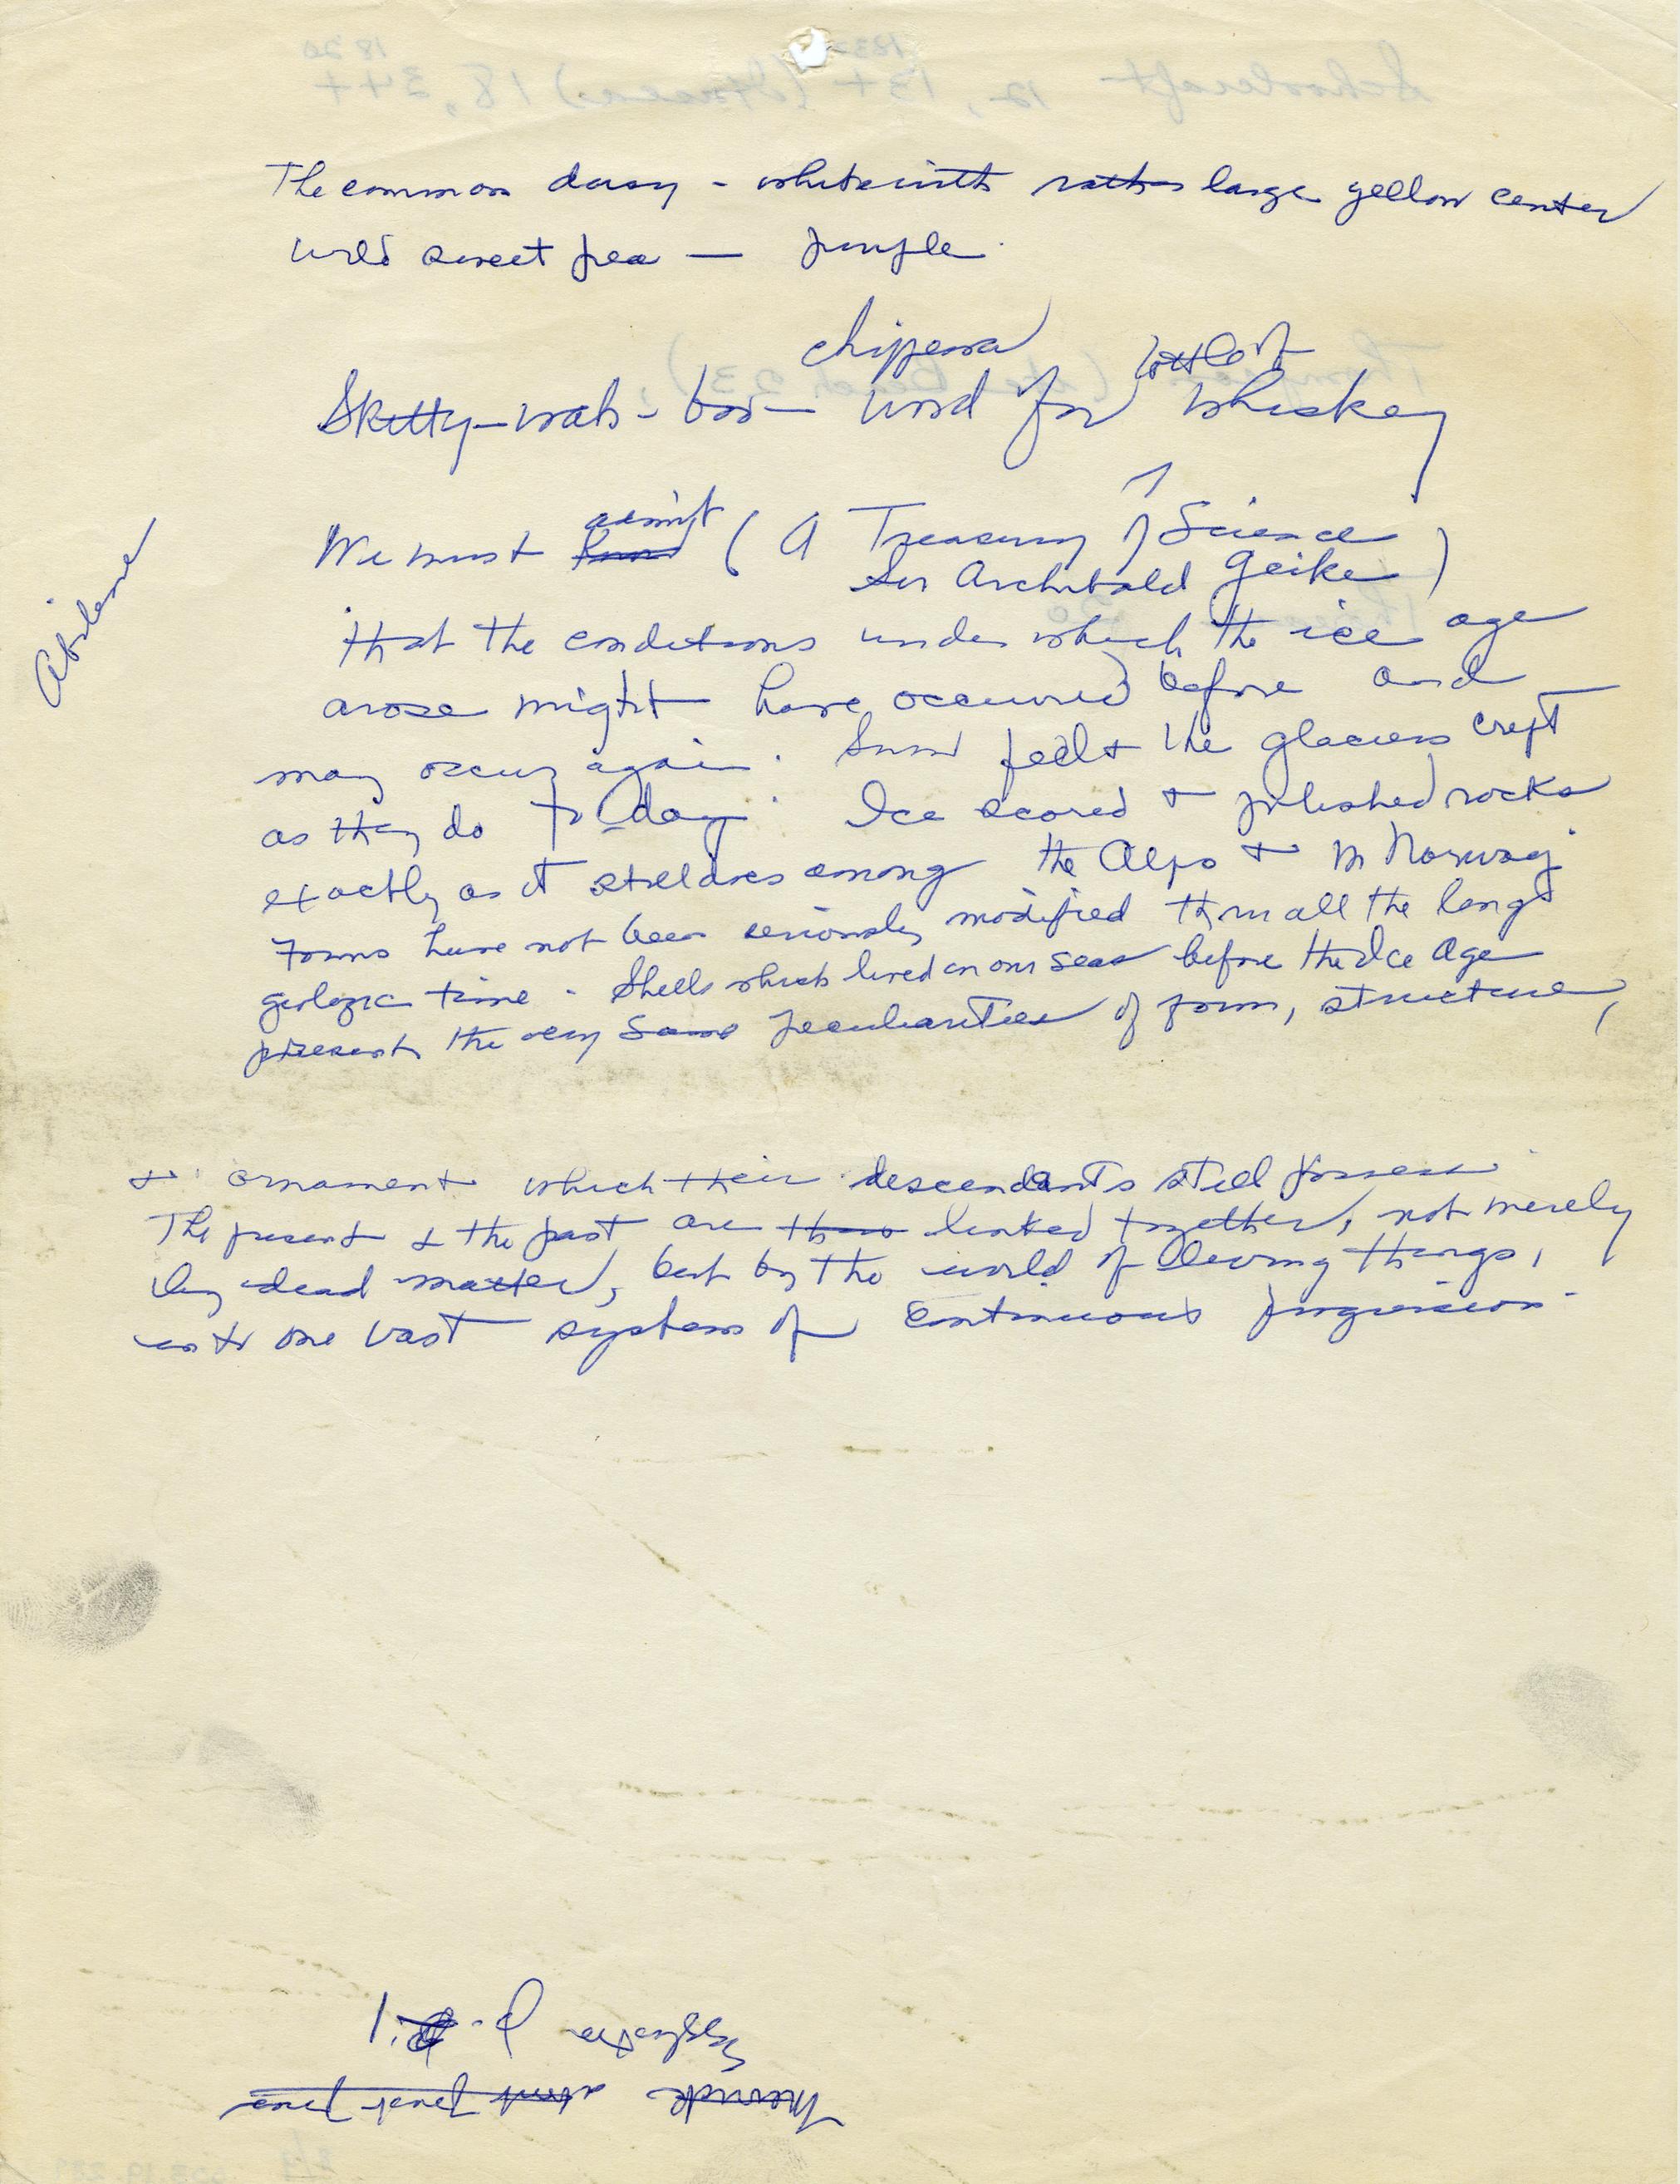 The common daisy - white with rather large yellow center
wild sweet pea — purple.
chippewa bottle of
Skitty-wah-boo- word for whiskey
Abilene
admit
We must know ( A Treasury of Science
Sir Archibald Geike )
that the conditions under which the ice age
arose might have occurred before and
may occur again. Snow fell & the glaciers crept
as they do to-day. Ice scored & polished rocks
exactly as it still does among the Alps & in Norway
Forms have not been seriously modified thru all the long
geologic time - Shells which lived in our seas before the Ice Age
present the very same peculiarities of form, structure,
& ornament which their descendants still possess.
The present & the past are thus linked together, not merely
by dead matter, but by the world of living things,
into one vast system of continuous progression.
Merrick about